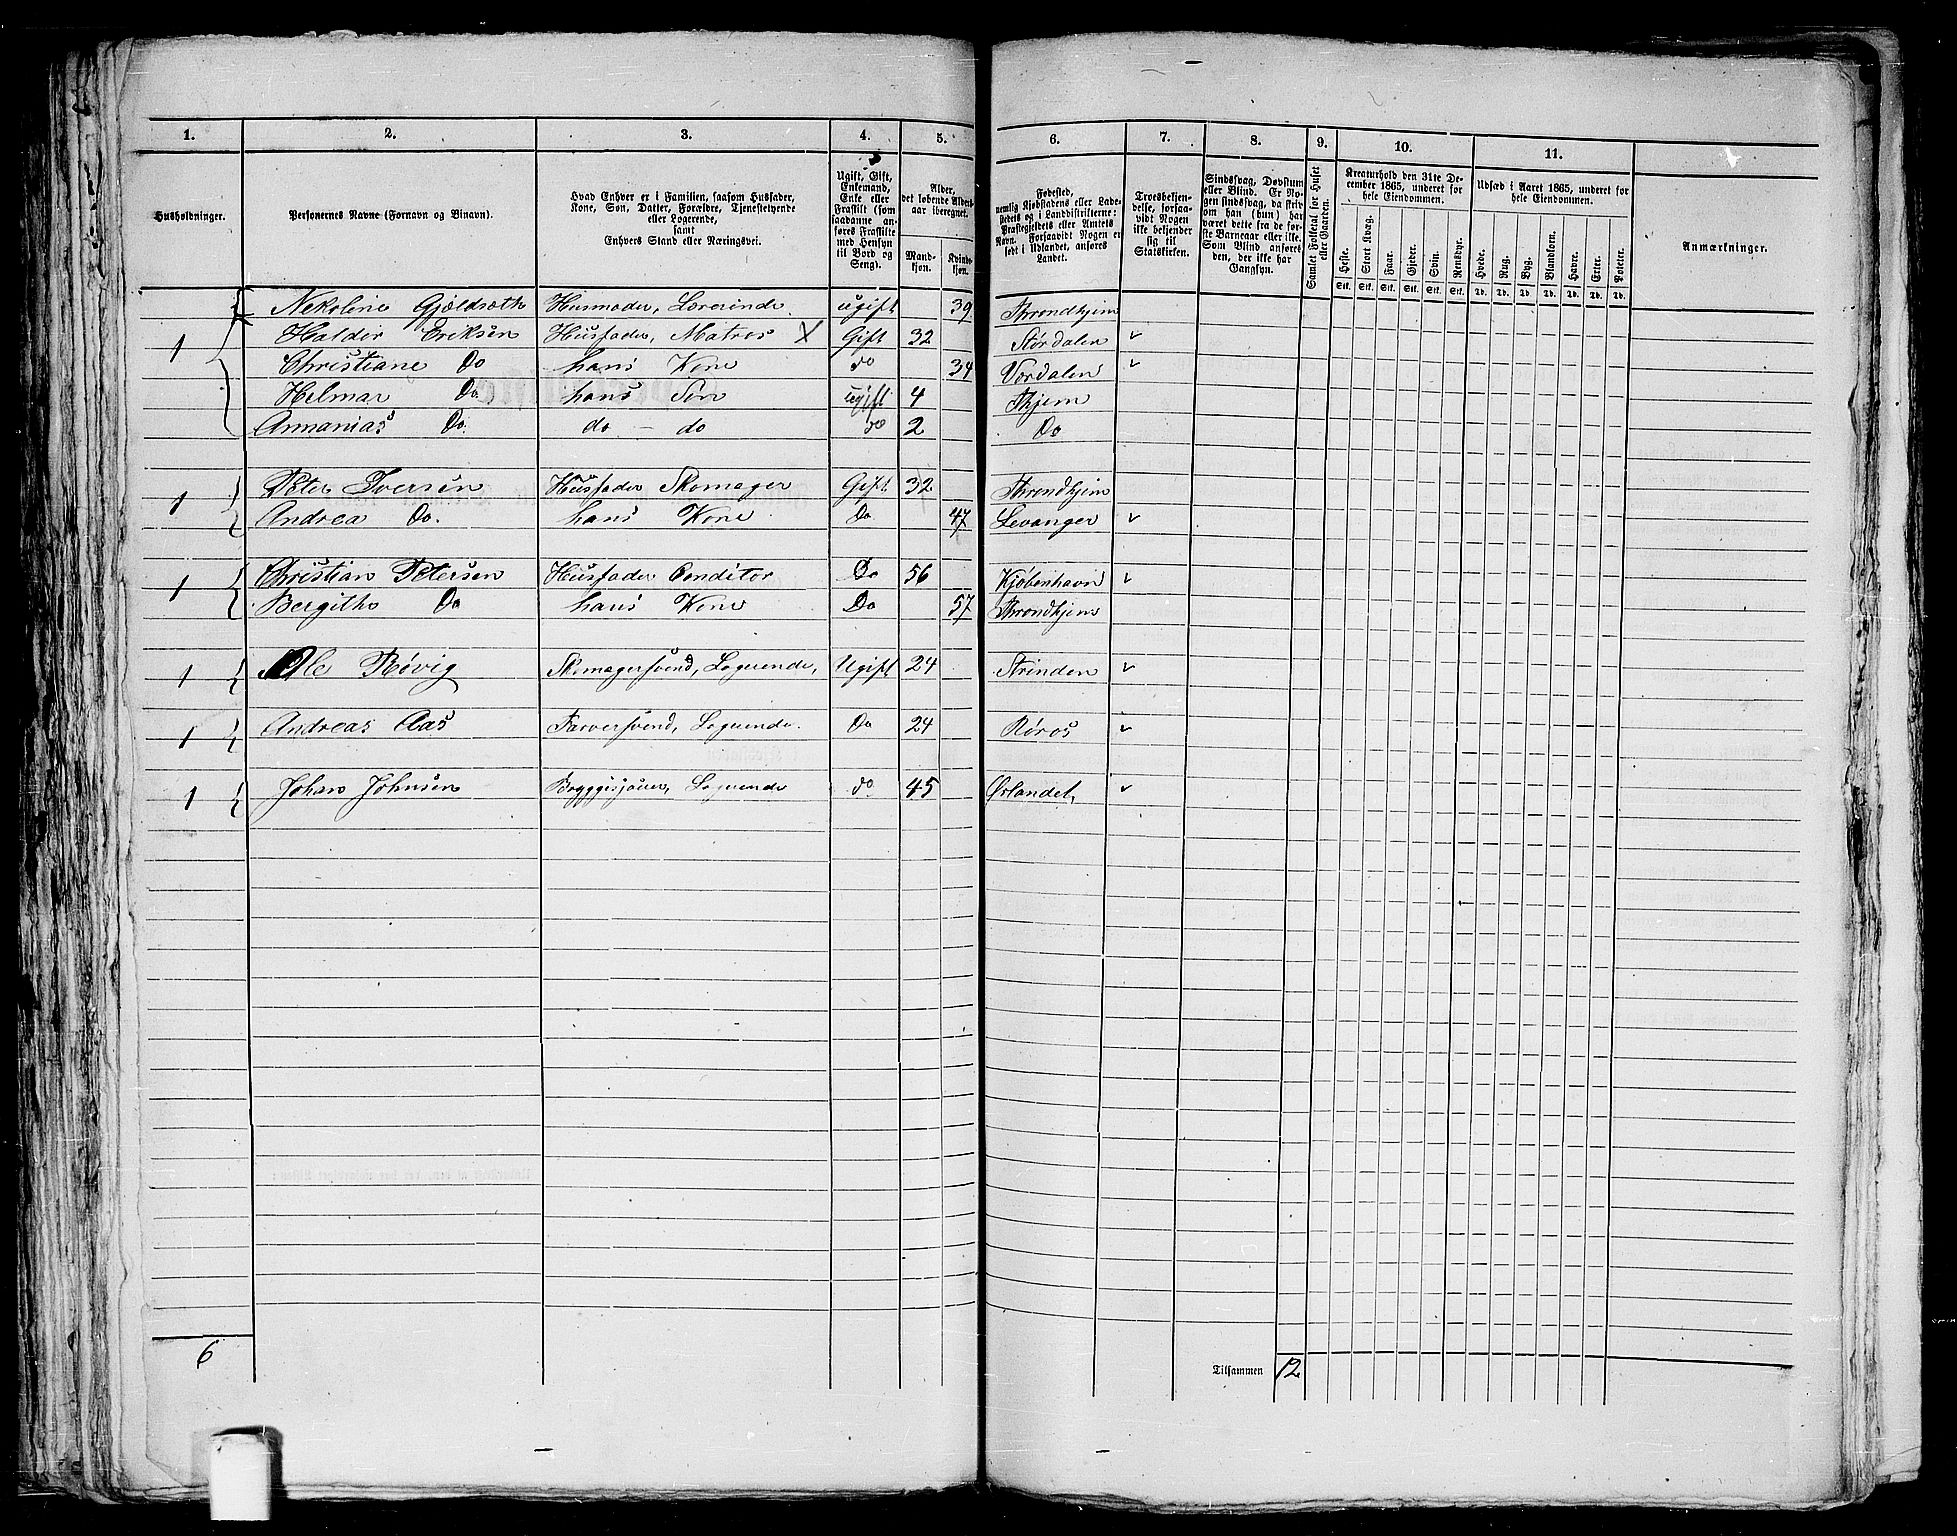 1. 2. 3. 4. 5. 6. 7. 8. 9. 10. 11.
Husholdninger.
Personernes Navne (Fornavn og Binavn).
Hvad Enhver er i Familien, saasom Husfader,
Kone, Søn, Datter, Forældre, Tjenestetyende
eller Logerende,
samt
Enhvers Stand eller Næringsvei.
Ugift, Gift,
Enkemand,
Enke eller
Fraskilt (som
saadanne an-
føres Fraskilte
med Hensyn
til Bord og
Seng).
Alder,
det løbende Alders-
aar iberegnet.
Mand-
kjøn.
Kvinde-
kjøn.
Fødested,
nemlig Kjøbstadens eller Lade-
stedets og i Landdistrikterne:
Præstegjeldets eller Amtets
Navn. Forsaavidt Nogen er
født i Udlandet, anføres
Landet.
Troesbekjen-
delse, forsaa-
vidt Nogen
ikke bekjender
sig til
Statskirken.
Sindssvag, Døvstum
eller Blind. Er No-
gen sindssvag, da skriv
om han (hun) har
været dette fra de før-
ste Barneaar eller ikke.
Som Blind anføres
den, der ikke har
Gangsyn.
Samlet Folketal for Huset
eller Gaarden.
Kreaturhold den 31te De-
cember 1865, underet for
hele Eiendommen.
Heste. Stort Kvæg. Faar. Gjeder. Svin. Rensdyr.
Stk. Stk. Stk. Stk. Stk. Stk.
Udsæd i Aaret 1865, underet for
hele Eiendommen.
Hvede. Rug. Byg. Blandkorn. Havre. Erter. Poteter.
Td. Td. Td. Td. Td. Td. Td.
Anmærkninger.
Nekoline Gjeldsæth Husmoder, Lærerinde ugift 39 Throndhjem
1 Haldor Eriksen Husfader, Matros X Gift 32 Størdalen
Christiane Do hans Kone do 34 Værdalen
Helmar Do hans Søn ugift 4 Thjem
Annanias Do. do - do do 2 Do
1 Peter Iversen Husfader Skomager Gift 32 Throndhjem
Andrea Do. hans Kone Do 47 Levanger
1 Christian Petersen Husfader Conditor Do 56 Kjøbenhavn
Bergithe Do hans Kone Do 57 Throndhjem
1 Ole Røvig Skomagersvend, Logerende, Ugift 24 Strinden
1 Andreas Aas Farversvend, Logerende. Do 24 Røros
1 Johan Johnsen Logerende do 45 Ørlandet,
6
Tilsammen 12